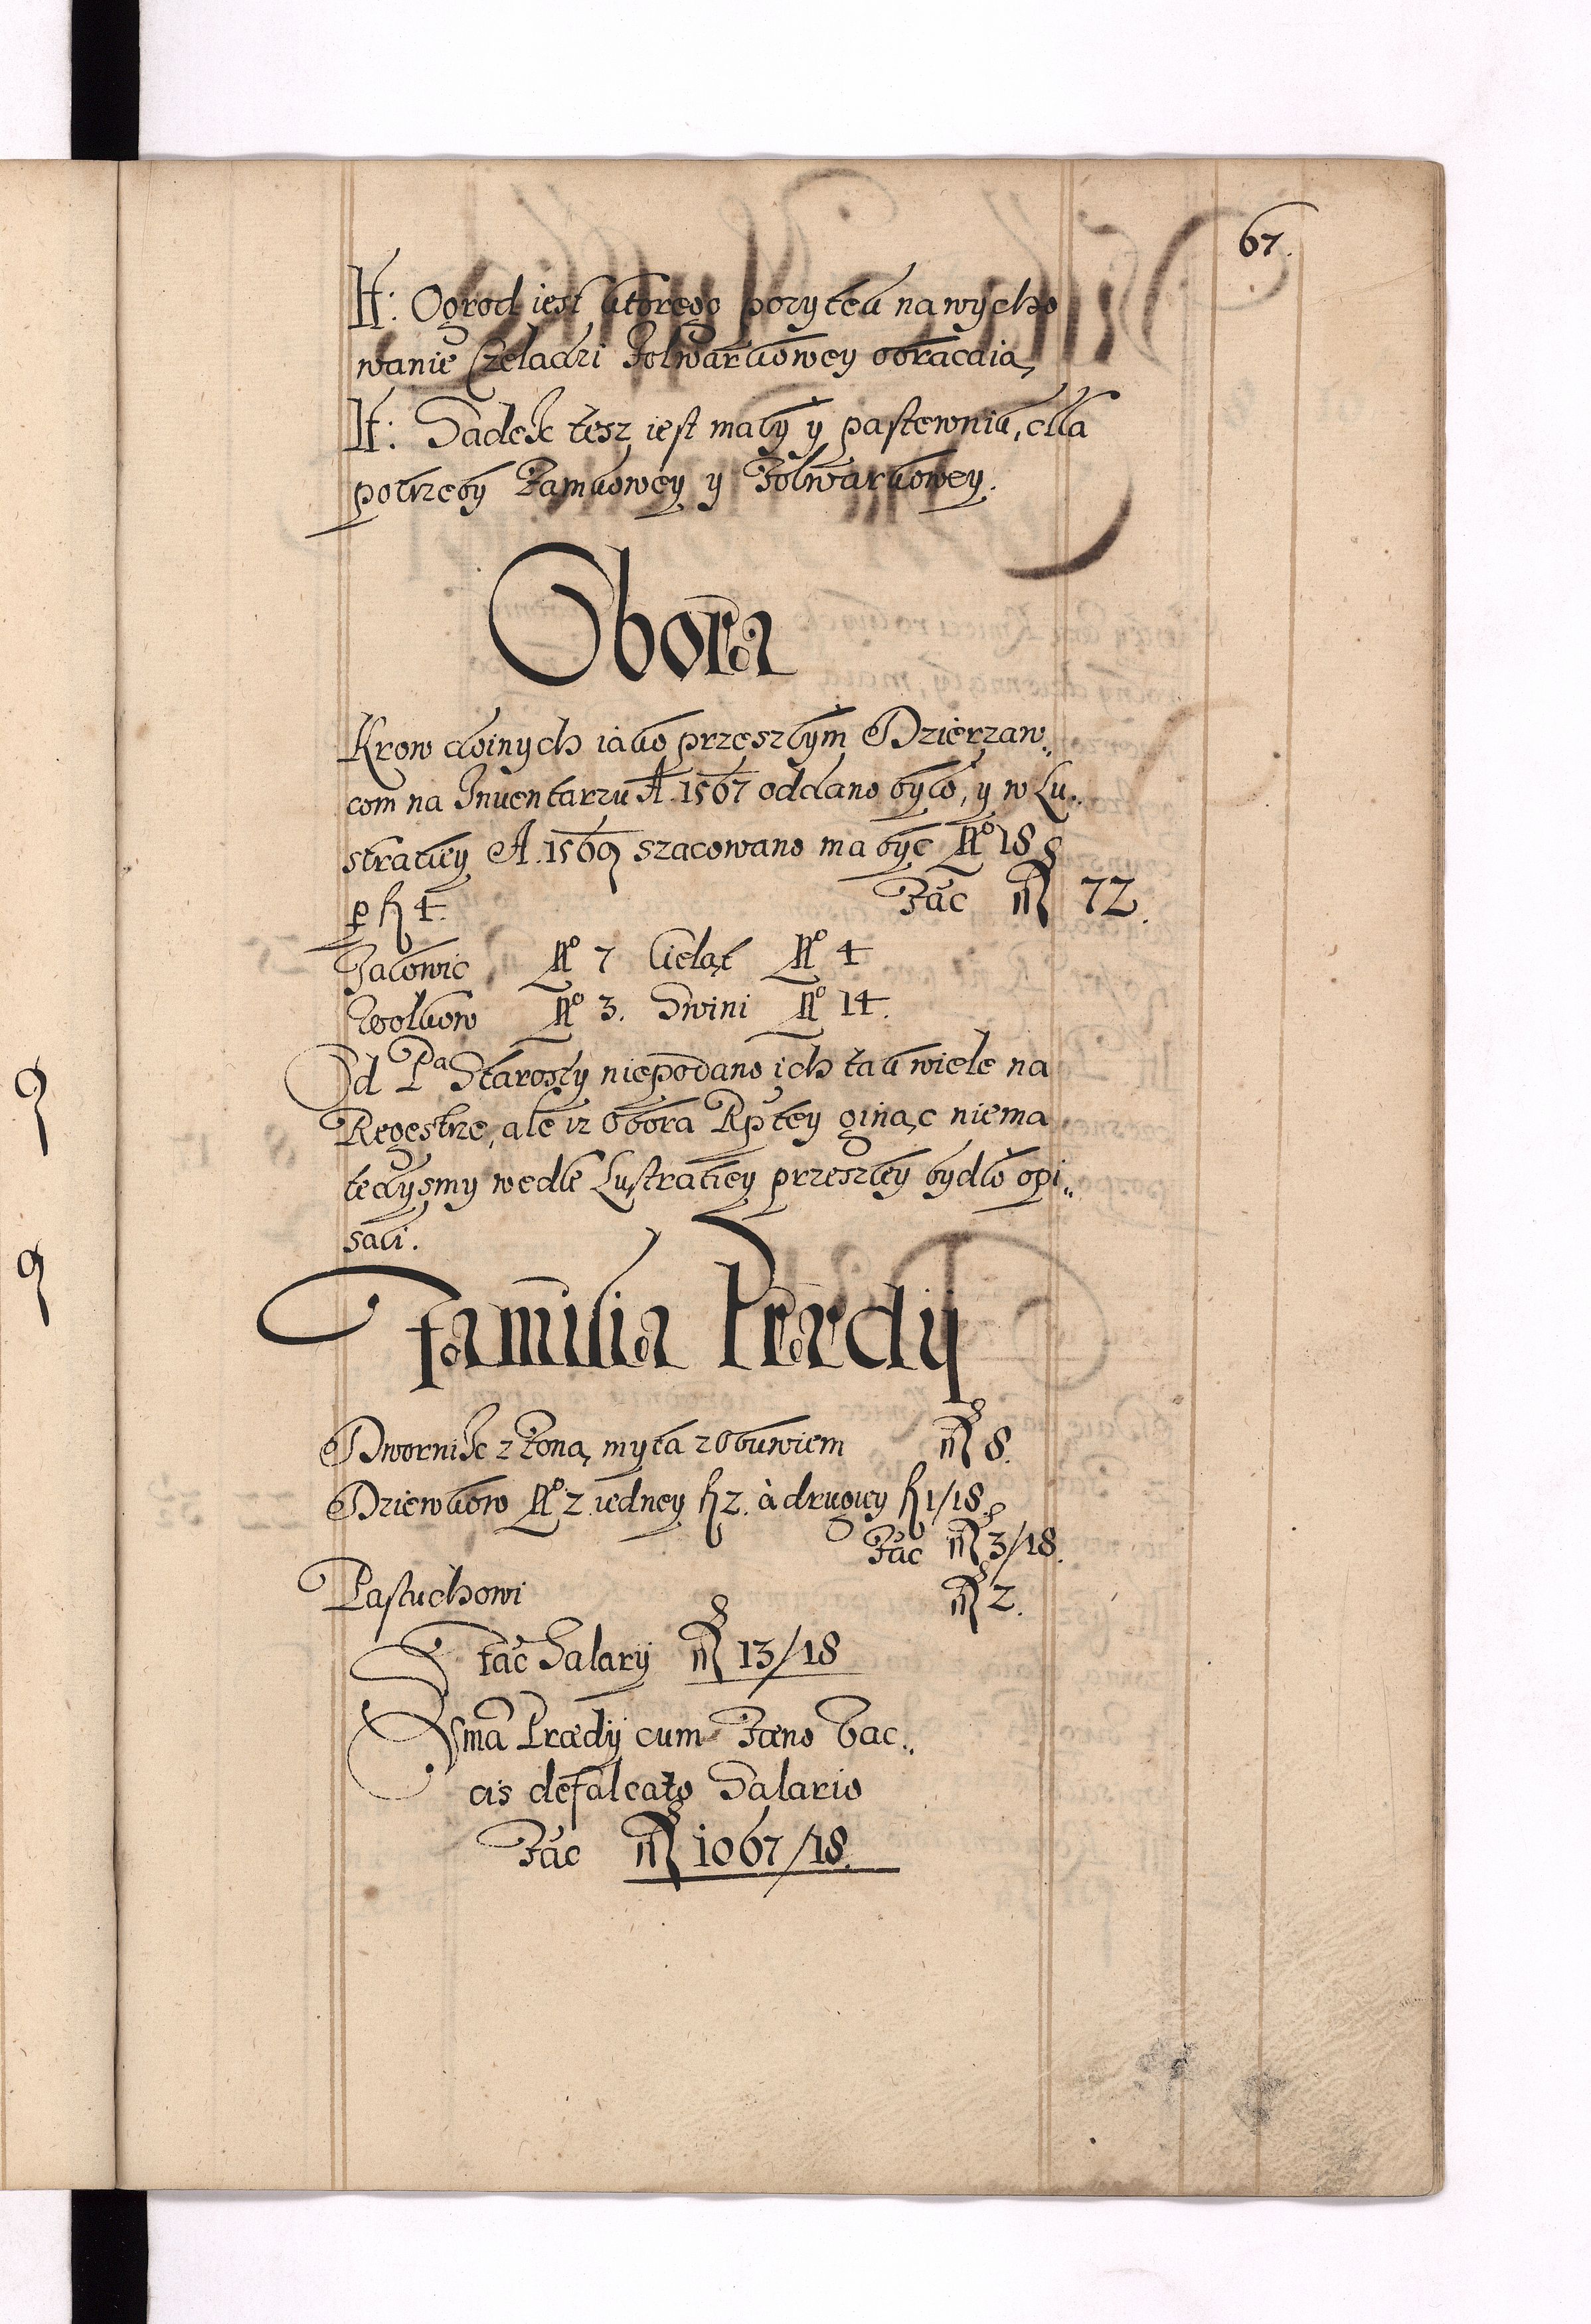 67.
It: Ogrod iest ktorego pozytek na wycho
wanie Czeladzi Folwarkowey obracaią
It: Sadek tesz iest mały y pastewnik, dla
potrzeby Zamkowey y Folwarkowey.
Obora
Krow doinych iako przeszłym Dzierzaw„
com na Inuentarzu A. 1567 oddano było, y w Lu„
stratiey A. 1569 szacowano ma być No 18
p fl 4. Fac 72.
Jałowic No 7 Cieląt No 4
Wołkow No 3. Swini No 14.
Od Pa Starosty niepodano ich tak wiele na
Regestrze, ale iz Obora Rptey ginąc niema
tedysmy wedle Lustratiey przeszłey bydło opi„
sali.
Familia Prædij
Dwornik z Żoną myta z Obuwiem 8.
Dziewkow No 2. iedney fl 2. à drugiey fl 1/18
Fac 3/18.
Pastuchowi 2.
fac Salarij 13/18
Sma Prædij cum Fæno Vac„
cis defalcato Salario
Fac 1067/18.